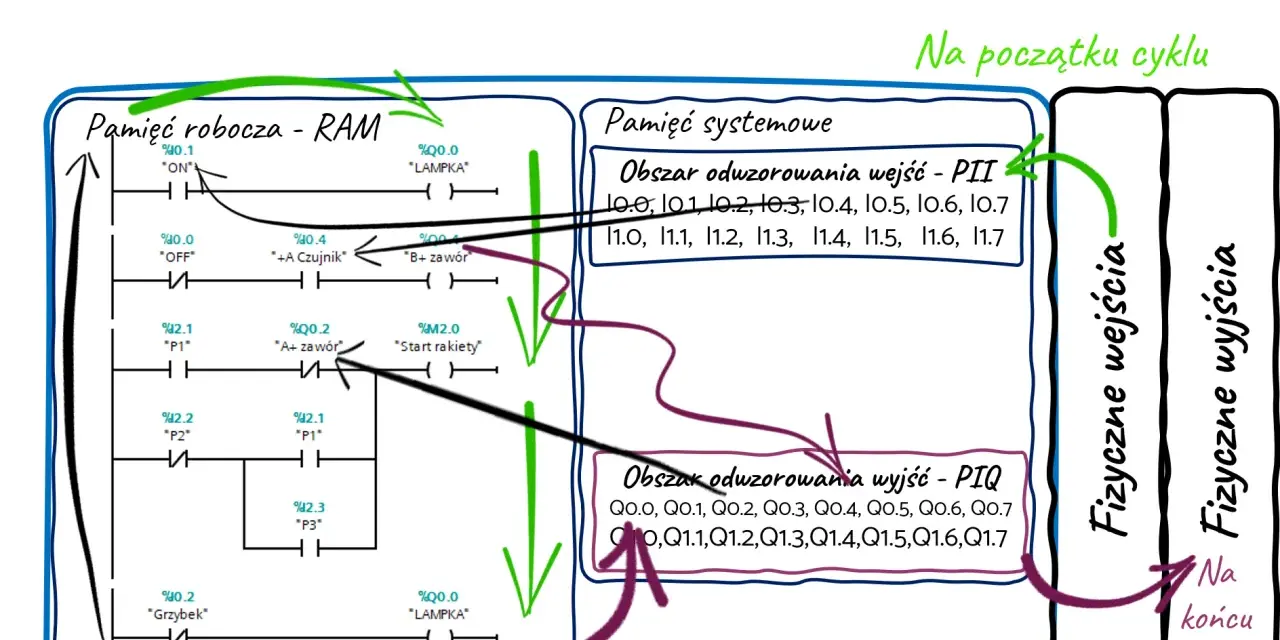 Na początku cyklu
Pamięć robocza - RAM
%I0.1
"ON"
%Q0.0
"LAMPKA"
%I0.0
"OFF"
%I0.4
"+A Czujnik"
%Q0.4
"B+ zawór"
%I2.1
"P1"
%Q0.2
"A+ zawór"
%M2.0
"Start rakiety"
%I2.2
"P2"
%I2.1
"P1"
%I2.3
"P3"
%I0.2
"Grzybek"
%Q0.0
"LAMPKA"
Pamięć systemowe
Obszar odwzorowania wejść - PII
I0.0, I0.1, I0.2, I0.3, I0.4, I0.5, I0.6, I0.7
I1.0, I1.1, I1.2, I1.3, I1.4, I1.5, I1.6, I1.7
Obszar odwzorowania wyjść - PIQ
Q0.0, Q0.1, Q0.2, Q0.3, Q0.4, Q0.5, Q0.6, Q0.7
Q1.0,Q1.1,Q1.2,Q1.3,Q1.4,Q1.5,Q1.6,Q1.7
Fizyczne wejścia
Fizyczne wyjścia
Na
końcu